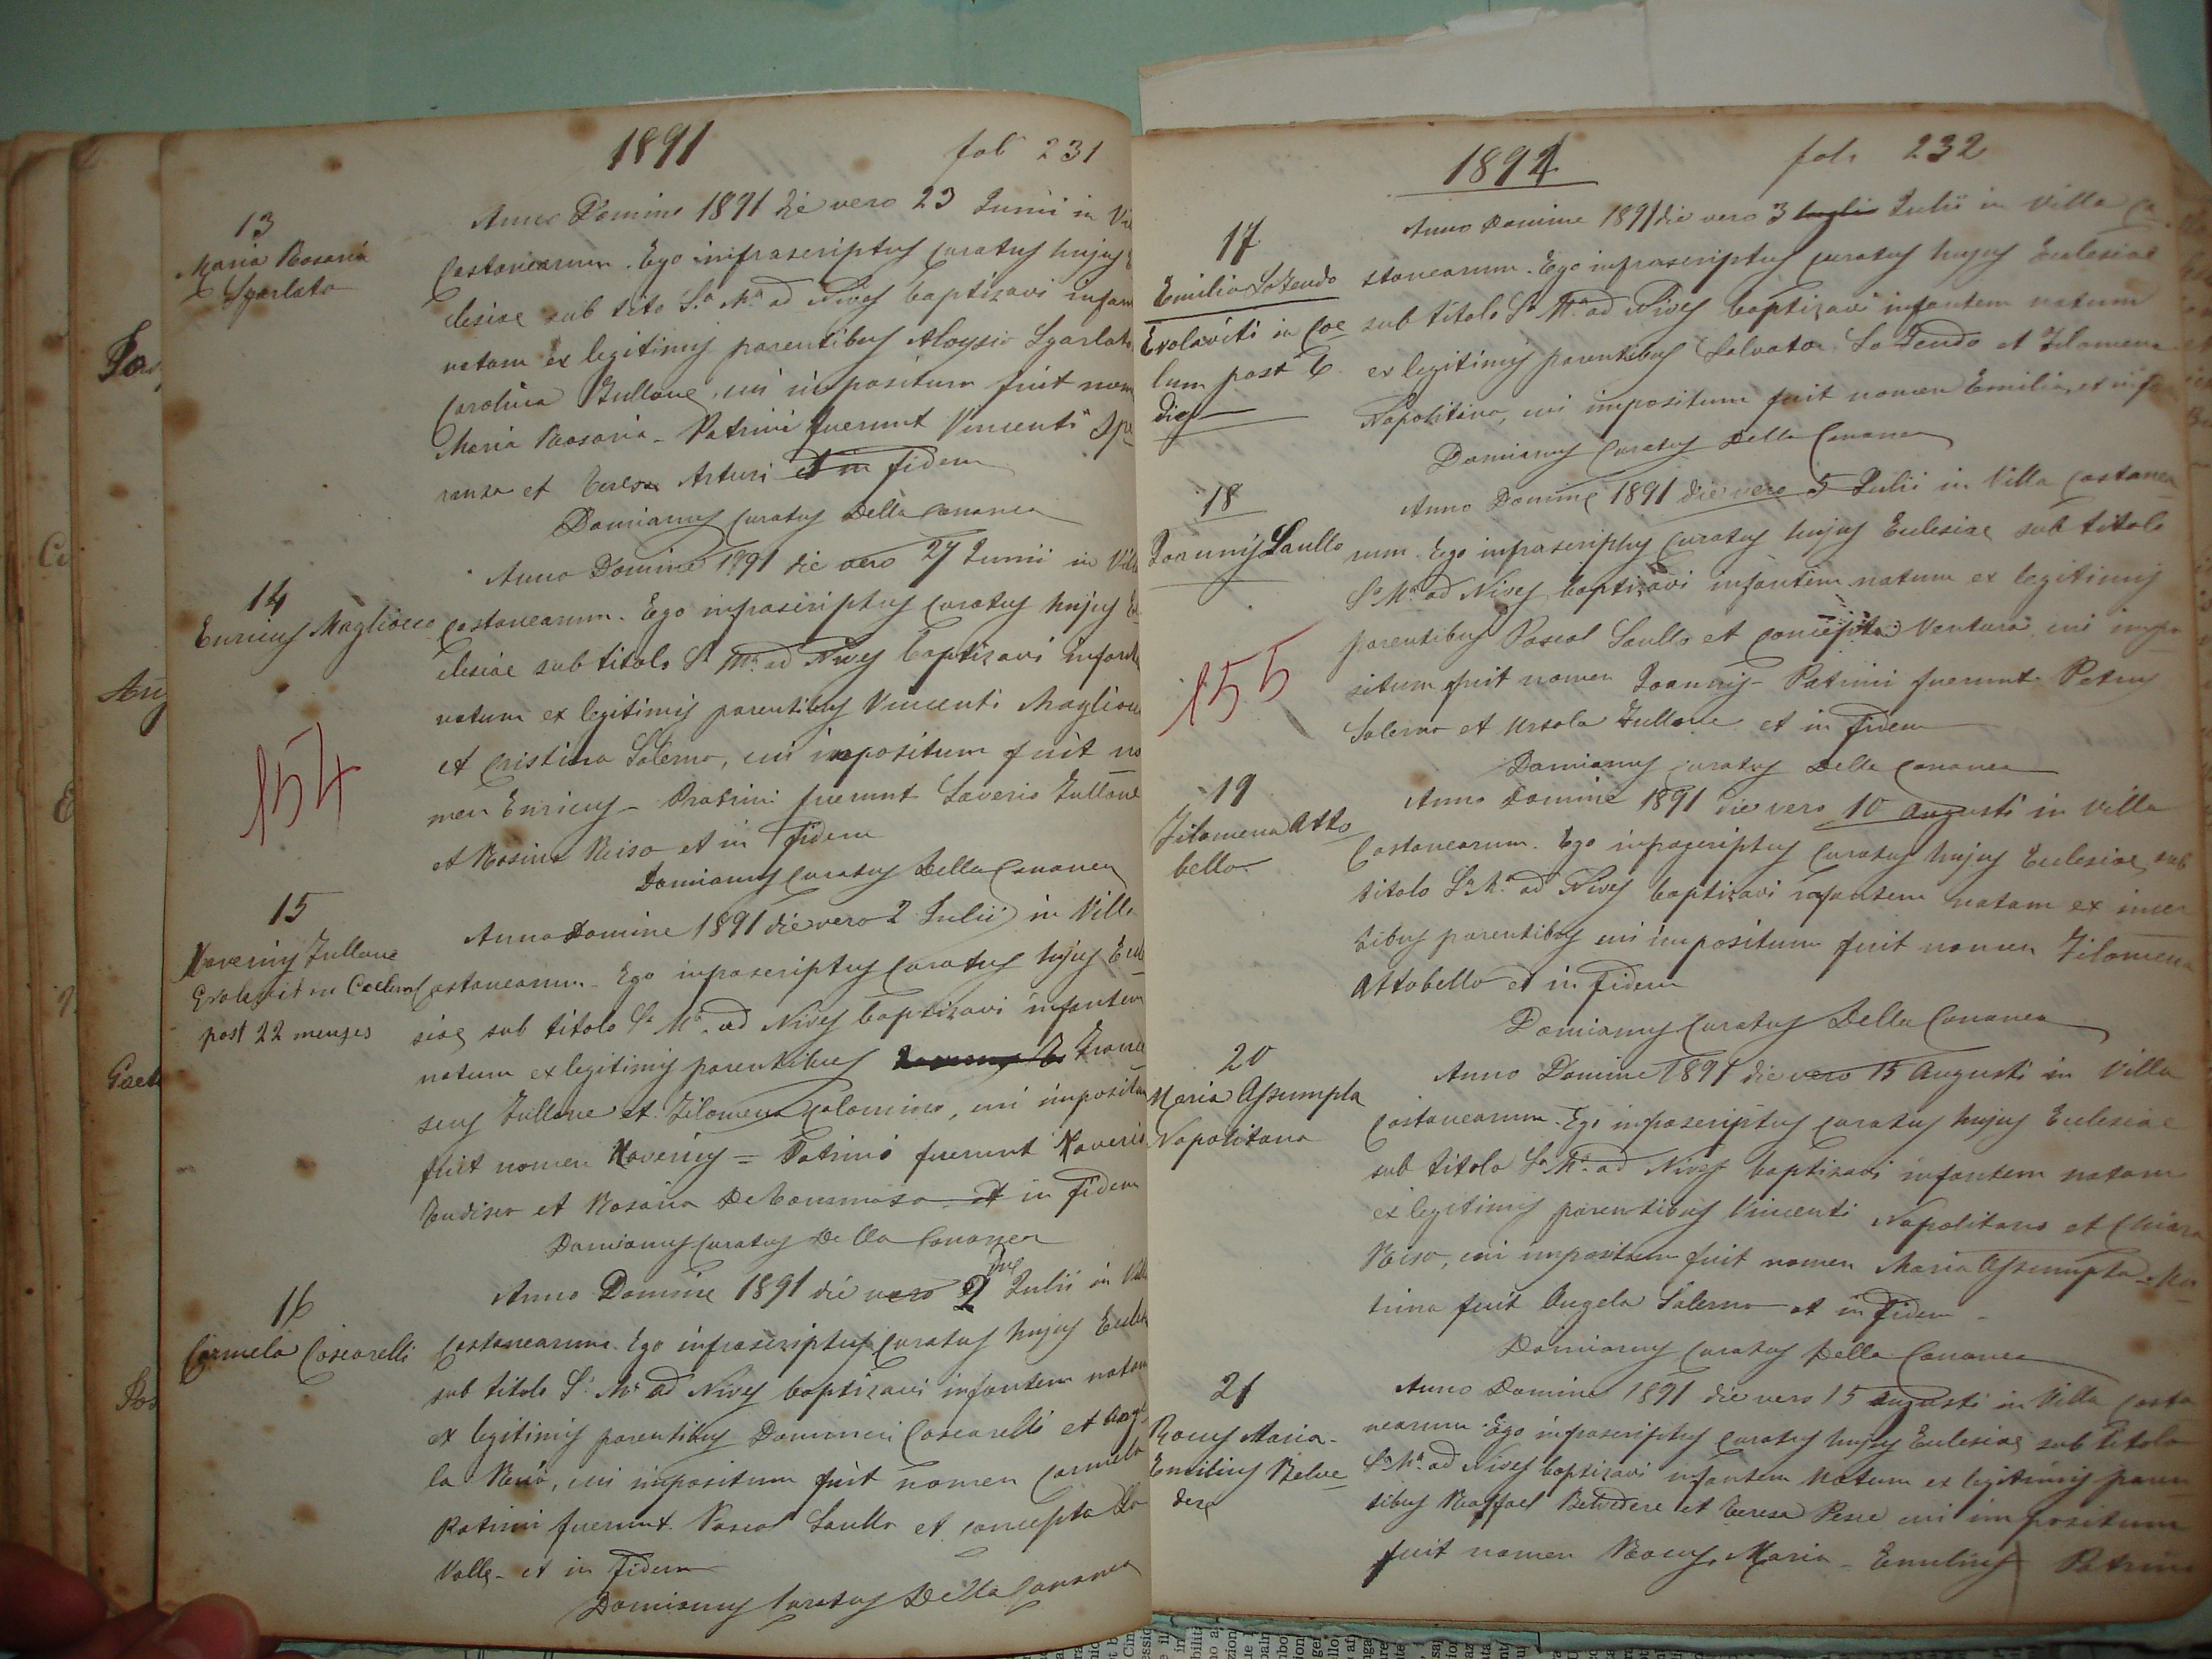 1891
fol 231
13
Maria Rosaria
Sgarlato
Anno Domine 1891 die vero 23 Junii in
Castanearum. Ego infrascriptus Curatus hujus
clesiae sub tito S.a M.a ad Nives baptizavi
natam ex legitimis parentibus Aloysio Sgarlato
Carolina Zullone, cui impositum fuit
Maria Rosaria - Patrini fuerunt Vincenti
ranza et Teresa Arturi et in fidem
Damianus Curatus Della Cananea
14
Enricus Magliocco
Anno Domine 1891 die vero 27 Junii in
Castanearum. Ego infrascriptus Curatus hujus
clesiae sub titolo S.a M.a ad Nives baptizavi
natum ex legitimis parentibus Vincenti
et Cristina Salerno, cui impositum fuit no
men Enricus - Pratrini fuerunt Saverio Zullone
et Rosina Reiso et in fidem
Damianus Curatus Della Cananea
154
15
Xaverius Zullone
Evolavit in Coelum
post 22 menses
Anno Domine 1891 die vero 2 Julii in Villa
Castanearum - Ego infrascriptus Curatus hujus
siae sub titolo S.a M.a ad Nives baptizavi infantem
natum ex legitimis parentibus Franc
scus Zullone et Filomena Palomino, cui impositum
fuit nomen Xaverius = Patrini fuerunt Xaverio
et Rosaria De Tommaso et in fidem
Damianus Curatus Della Cananea
16
Carmela Coscarelli
Anno Domine 1891 die vero 2 Julii in
Castanearum. Ego infrascriptus Curatus hujus
sub titolo S.a M.a ad Nives baptizavi infantem natam
ex legitimis parentibus Dominici Coscarelli et Ange
la, cui impositum fuit nomen Carmela
Patrini fuerunt Pascal Saullo et Concepta La
Valle - et in fidem
Damianus Curatus Della Cananea
1891
fol. 232
17
Emilia LoFendo
Evolaviti in Coe
lum post 6
dies
Anno Domine 1891 die vero 3 luglio Julii in Villa Ca
stanearum. Ego infrascriptus Curatus hujus Eeclesiae
sub titolo S.a M.a ad Nives baptizavi infantem natum
ex legitimis parentibus Salvator LoFendo et Filomena
Napolitano, cui impositum fuit nomen Emilia, et in
Damianus Curatus Della Cananea
18
Joannis Saullo
Anno Domine 1891 die vero 5 Julii in Villa Castanea
rum. Ego infrascriptus Curatus hujus Eeclesiae sub titolo
S.a M.a ad Nives baptizavi infantem natum ex legitimis
parentibus Pascal Saullo et Concepta Ventura, cui impo
situm fuit nomen Joannis - Patrini fuerunt Petrus
Salerno et Ursola Zullone et in fidem
Damianus Curatus Della Cananea
155
19
Filomena Atto
bello
Anno Domine 1891 die vero 10 Augusti in Villa
Castanearum. Ego infrascriptus Curatus hujus Eeclesiae sub
titolo S.a M.a ad Nives baptizavi infantem natam ex incer
tibus parentibus cui impositum fuit nomen Filomena
Attobello et in fidem
Damianus Curatus Della Cananea
20
Maria Assumpta
Napolitano
Anno Domine 1891 die vero 15 Augusti in Villa
Castanearum. Ego infrascriptus Curatus hujus Eeclesiae
sub titolo S.a M.a ad Nives baptizavi infantem natam
ex legitimis parentibus Vincenti Napolitano et Chiara
Reiso, cui impositum fuit nomen Maria Assumpta - Ma
trina fuit Angela Salerno et in fidem -
Damianus Curatus Della Cananea
21
Rocus Maria -
Emilius Belve
dere
Anno Domine 1891 die vero 15 Augusti in Villa Casta
nearum. Ego infrascriptus Curatus hujus Eeclesiae sub titolo
S.a M.a ad Nives baptizavi infantem natum ex legitimis paren
tibus Raffael Belvedere et Teresa Pesce cui impositum
fuit nomen Rocus, Maria - Emilius Patrini